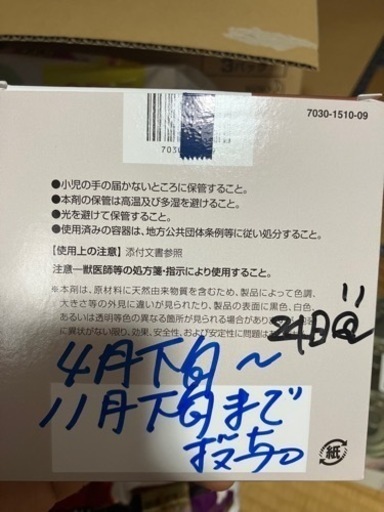 7030-1510-09
7030
●小児の手の届かないところに保管すること。
●本剤の保管は高温及び多湿を避けること。
●光を避けて保管すること。
●使用済みの容器は、地方公共団体条例等に従い処分すること。
【使用上の注意】添付文書参照
注意ー獣医師等の処方箋・指示により使用すること。
※本剤は、原材料に天然由来物質を含むため、製品によって色調、
大きさ等の外見に違いが見られたり、製品の表面に黒色、白色、
あるいは透明等色の異なる箇所が見られる場合があり
異状がない限り、効果、安全性、および安定性に問題は
24日
4月下旬〜
11月下旬まで
投与。
紙